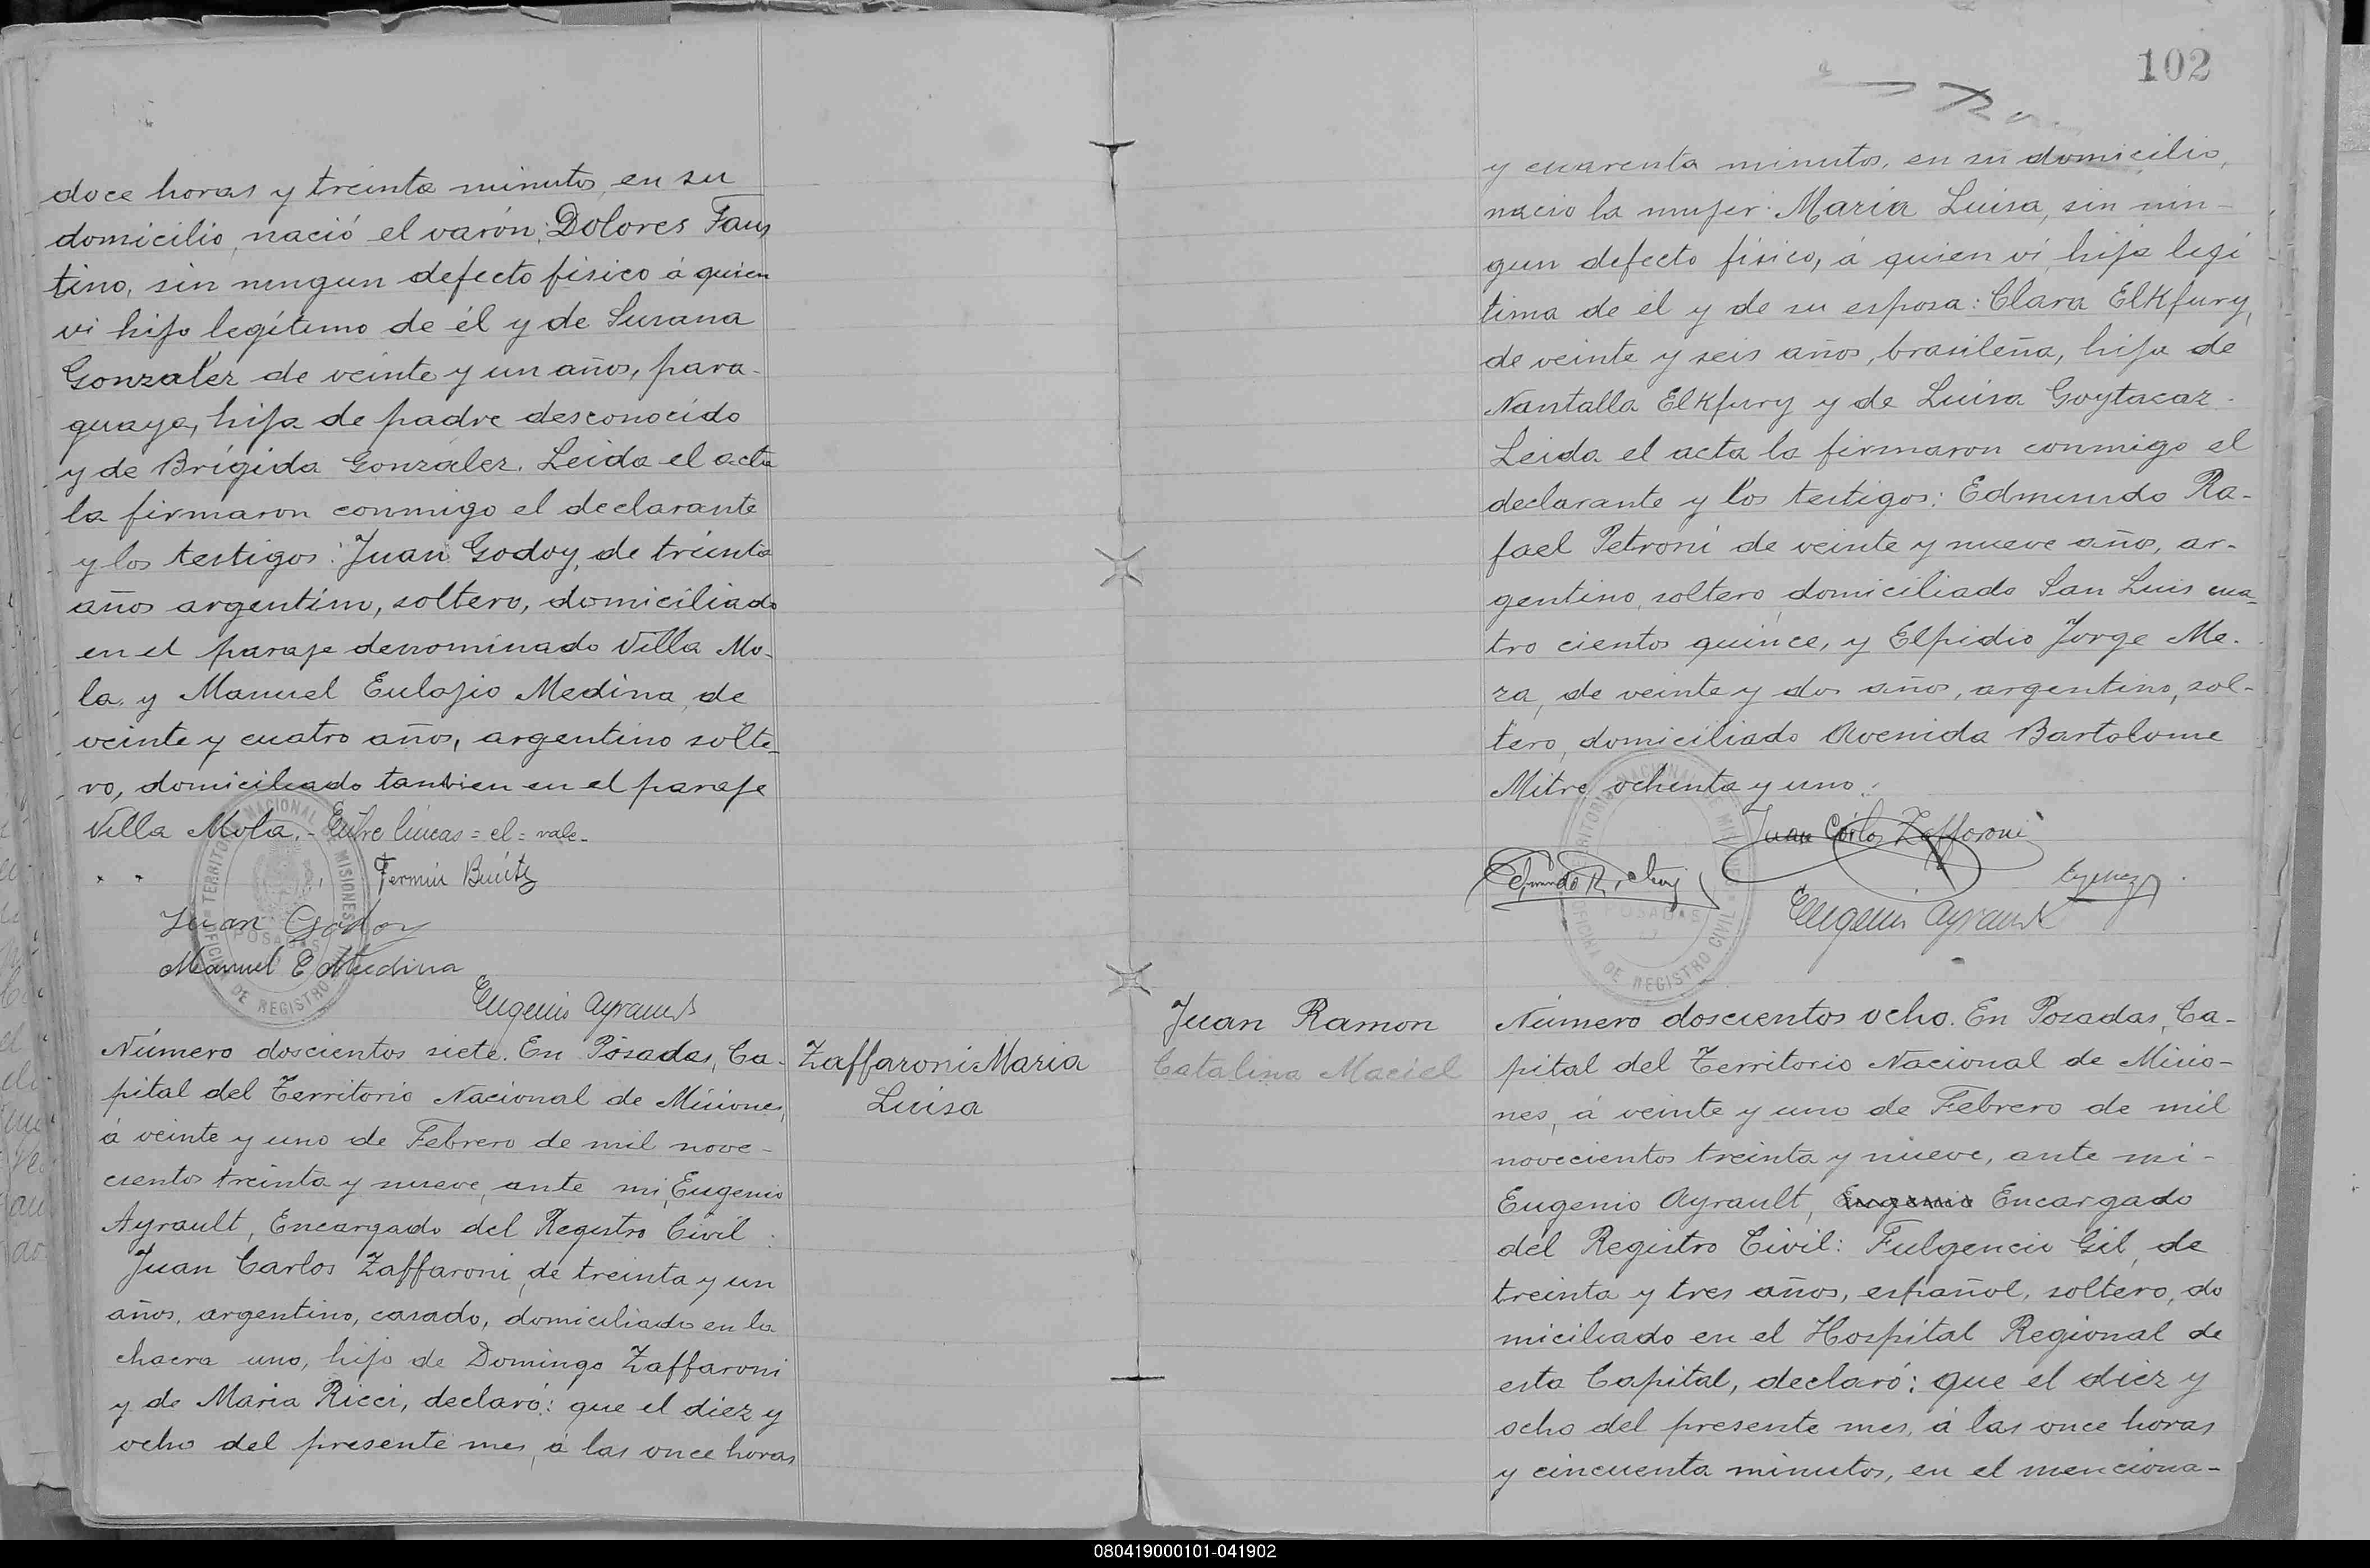 doce horas y treinta minutos, en su
domicilio, nació el varón: Dolores Faus
tino, sin ningun defecto físico á quien
vi hijo legítimo de él y de Susana
González de veinte y un años, para-
guaya, hija de padre desconocido
y de Brígida González. Leida el acta
la firmaron conmigo el declarante
y los testigos: Juan Godoy, de treinta
años argentino, soltero, domiciliado
en el paraje denominado Villa Mo-
la, y Manuel Eulojio Medina, de
veinte y cuatro años, argentino solte-
ro, domiciliado tambien en el paraje
Villa Mola. - Entre líneas = el = vale -
Fermin Benítez
Juan Godoy
Manuel E Medina
Eugenio Ayrault
TERRITORIO NACIONAL DE MISIONES
POSADAS
OFICINA DE REGISTRO CIVIL
Número doscientos siete. En Posadas, Ca-
pital del Territorio Nacional de Misiones,
á veinte y uno de Febrero de mil nove-
cientos treinta y nueve, ante mi, Eugenio
Ayrault, Encargado del Registro Civil:
Juan Carlos Zaffaroni, de treinta y un
años, argentino, casado, domiciliado en la
chacra uno, hijo de Domingo Zaffaroni
y de Maria Ricci, declaró: que el diez y
ocho del presente mes, á las once horas
Zaffaroni Maria
Luisa
102
y cuarenta minutos, en su domicilio,
nacio la mujer: Maria Luisa, sin nin-
gun defecto físico, á quien vi, hija legi
tima de el y de su esposa: Clara Elkfury,
de veinte y seis años, brasileña, hija de
Nantalla Elkfury y de Luisa Goytacaz.
Leida el acta la firmaron conmigo el
declarante y los testigos: Edmundo Ra-
fael Petroni de veinte y nueve años, ar-
gentino, soltero domiciliado San Luis cua-
tro cientos quince, y Elpidio Jorge Me-
za, de veinte y dos años, argentino, sol-
tero, domiciliado Avenida Bartolome
Mitre ochenta y uno.
Juan Carlos Zaffaroni
Eugenio Ayrault
TERRITORIO NACIONAL DE MISIONES
POSADAS
OFICINA DE REGISTRO CIVIL
Juan Ramon
Catalina Maciel
Número doscientos ocho. En Posadas, Ca-
pital del Territorio Nacional de Misio-
nes, á veinte y uno de Febrero de mil
novecientos treinta y nueve, ante mi -
Eugenio Ayrault, Eugenio Encargado
del Registro Civil: Fulgencio Gil, de
treinta y tres años, español, soltero, do
miciliado en el Hospital Regional de
esta Capital, declaró: que el diez y
ocho del presente mes, á las once horas
y cincuenta minutos, en el menciona-
080419000101-041902